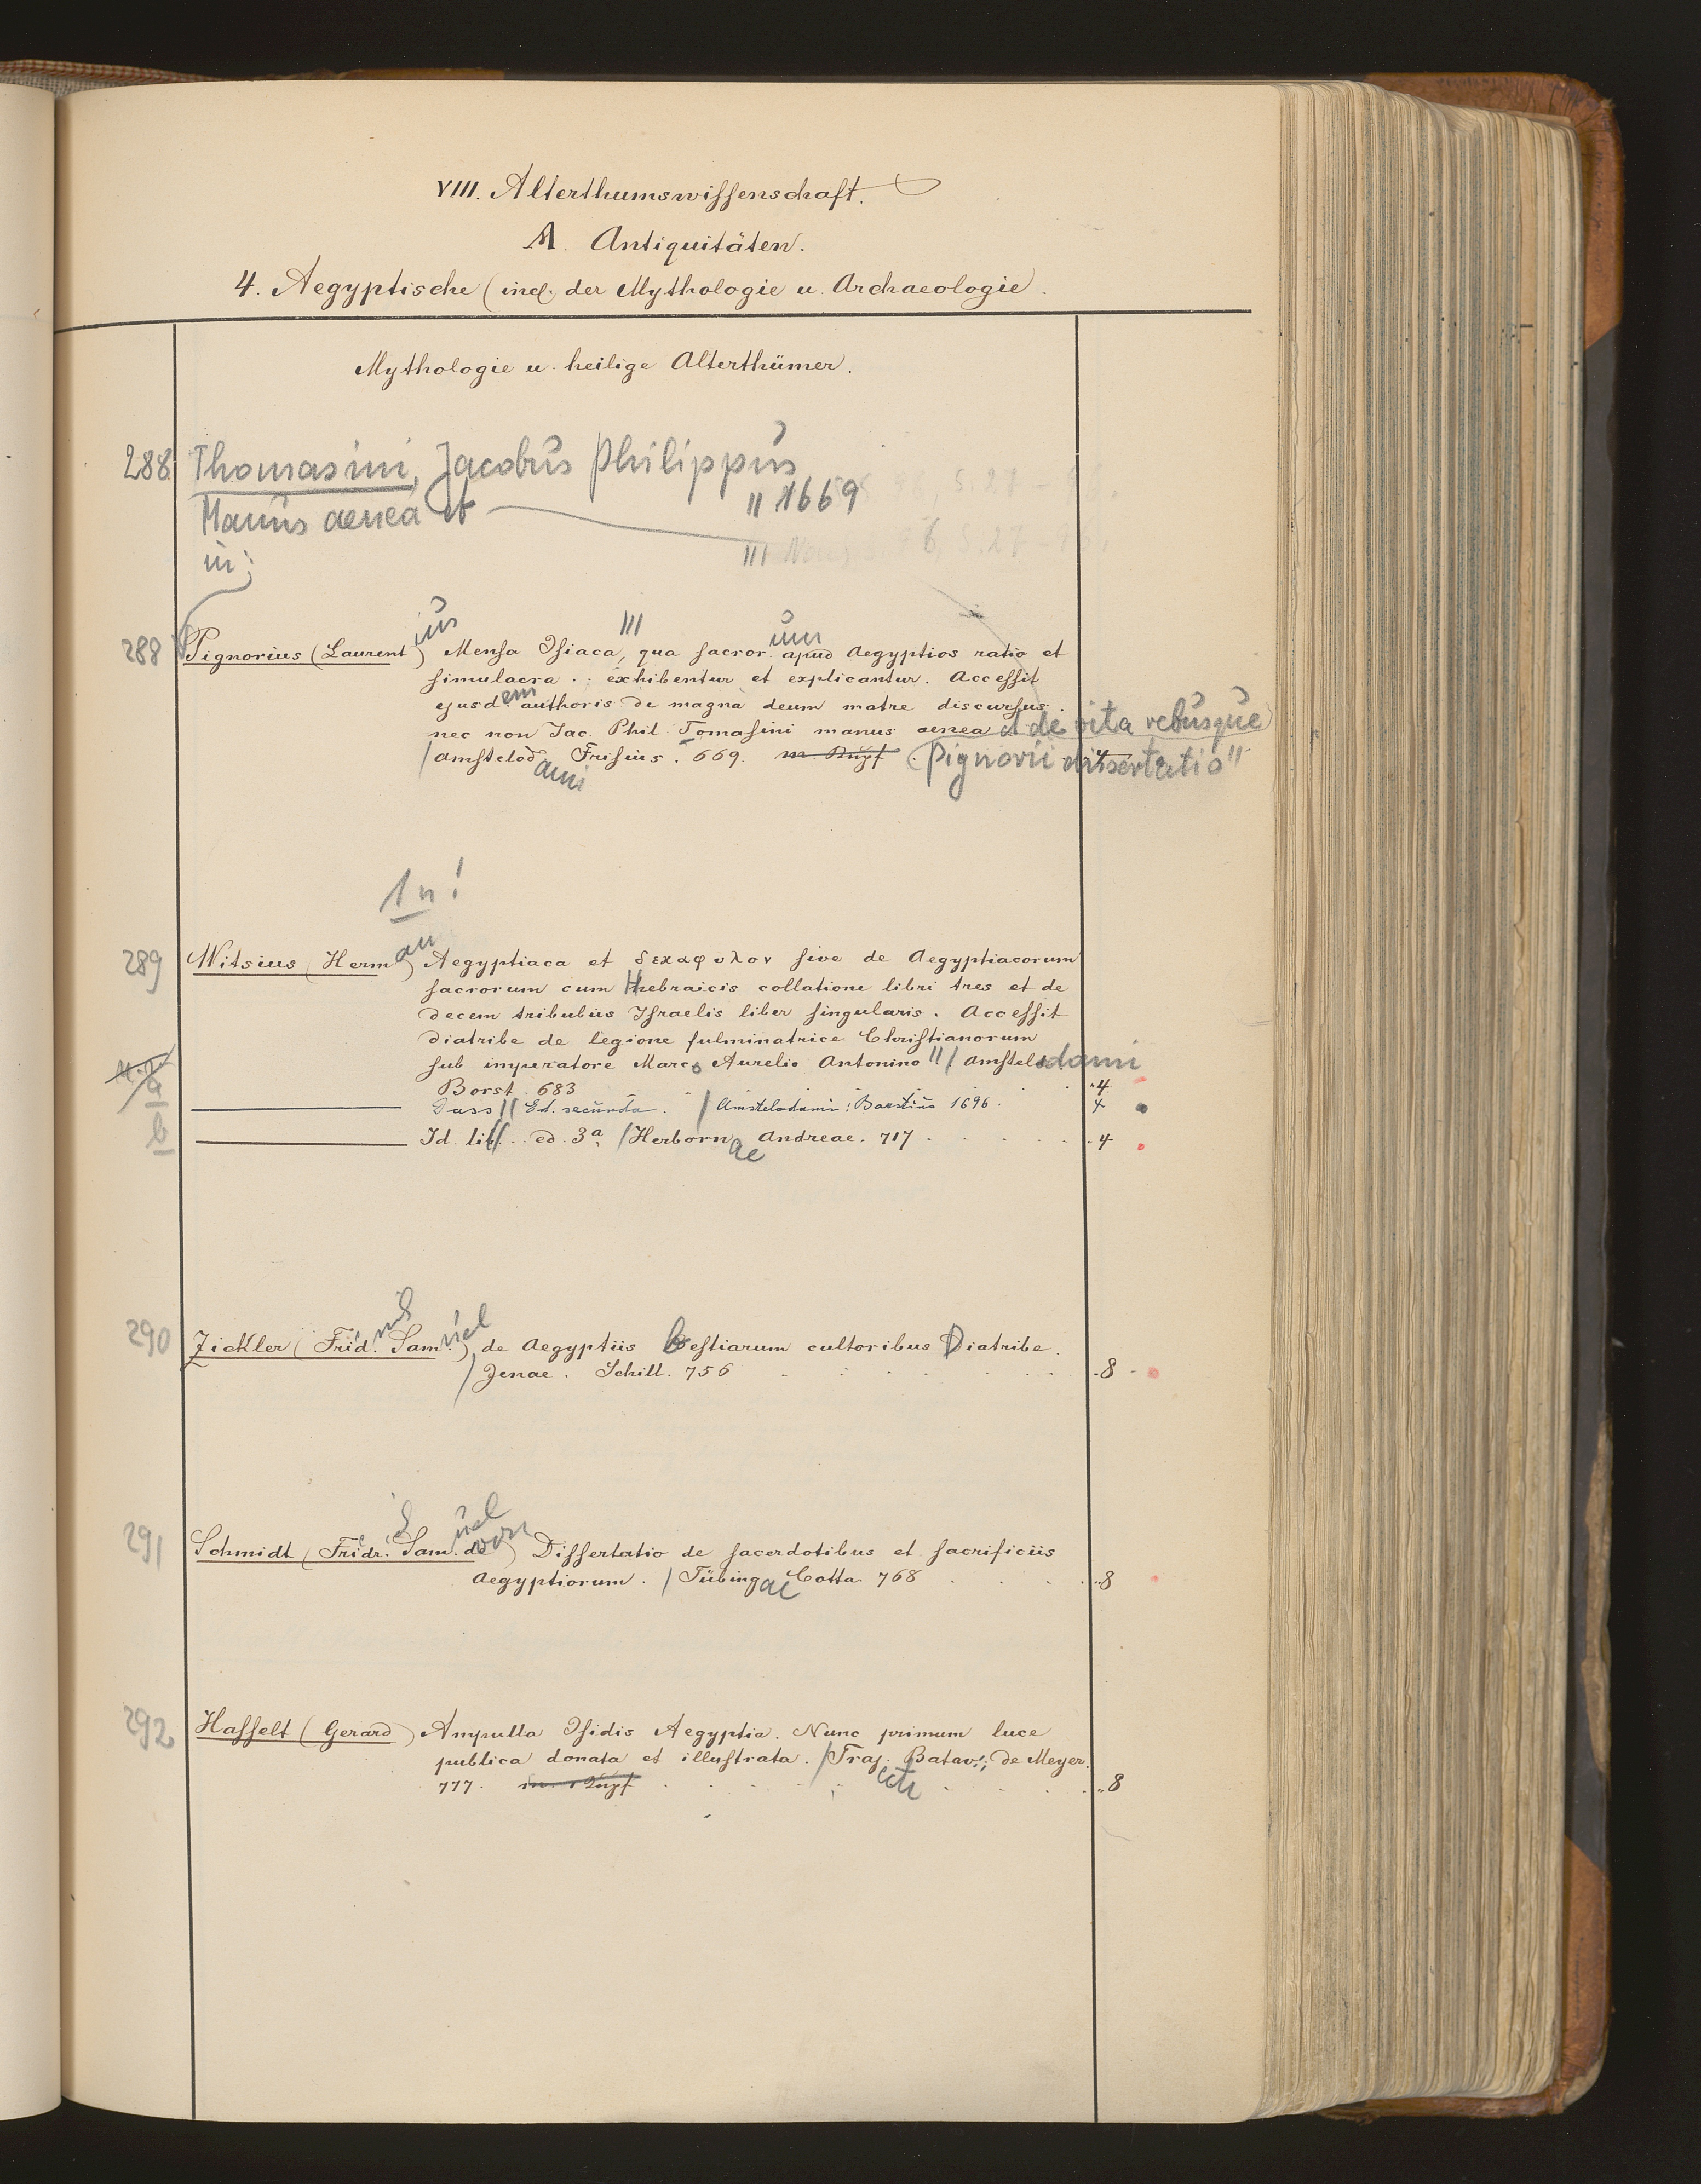 VIII. Alterthumswissenschaft.
A. Antiquitäten.
4. Aegyptische (incl. der Mythologie u. Archaeologie.
Mythologie u. heilige Alterthümer.
288 Thomasini, Jacobus Philippus
Manus aenea et " 1669
in: III
288 Pignorius (Laurentius) Mensa Isiaca, III qua sacrorum apud Aegyptios ratio et
simulacra .. exhibentur et explicantur. Accessit
ejusdem authoris de magna deum matre discursus.
nec non Jac. Phil. Tomasini manus aenea et de vita rebusque
/ Amstelodami Frisius. 669. Pignorii dissertatio" 4
1 n!
289 Witsius (Hermann) Aegyptiaca et δεκαφυλον sive de Aegyptiacorum
sacrorum cum Hebraicis collatione libri tres et de
decem tribubus Israelis liber singularis. Accessit
diatribe de legione fulminatrice Christianorum
sub imperatore Marco Aurelio Antonino " / Amstelodami
Borst. 683 "4
a Dass // Ed. secunda. / Amstelodami: Borstius 1696. 4
b Id. lib // .. ed. 3a, / Herbornae Andreae. 717 . 4
290 Zickler (Frid.nus Samuel) de Aegyptiis bestiarum cultoribus Diatribe.
/ Jenae. Schill. 756 . 8
291 Schmidt (Fridr. Samuel de von) Dissertatio de sacerdotibus et sacrificiis
Aegyptiorum. / Tübingae Cotta 768 . 8
292 Hasselt (Gerard) Ampulla Isidis Aegyptia. Nunc primum luce
publica donata et illustrata. / Traj.ecti Batav.; de Meyer.
777. 8